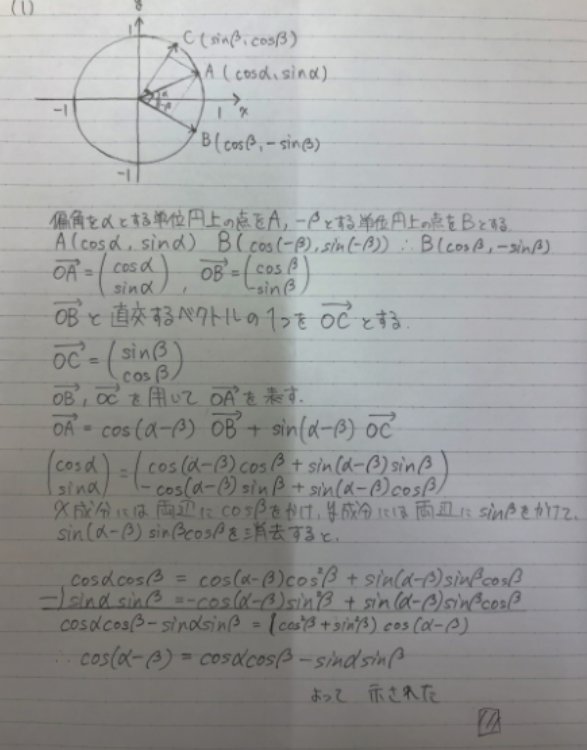 (1)
y
1
C(sinβ, cosβ)
A(cosα, sinα)
α
-β
-1
1
x
B(cosβ, -sinβ)
-1
偏角をαとする単位円上の点をA, -βとする単位円上の点をBとする
A(cosα, sinα) B(cos(-β), sin(-β)) ∴B(cosβ, -sinβ)
→OA = (cosα sinα), →OB = (cosβ -sinβ)
→OBと直交するベクトルの1つを→OCとする.
→OC = (sinβ cosβ)
→OB, →OCを用いて→OAを表す.
→OA = cos(α-β) →OB + sin(α-β) →OC
(cosα) = (cos(α-β)cosβ + sin(α-β)sinβ)
(sinα) (-cos(α-β)sinβ + sin(α-β)cosβ)
x成分には両辺にcosβをかけ, y成分には両辺にsinβをかけて,
sin(α-β)sinβcosβを消去すると,
cosαcosβ = cos(α-β)cos²β + sin(α-β)sinβcosβ
-) sinαsinβ = -cos(α-β)sin²β + sin(α-β)sinβcosβ
cosαcosβ - sinαsinβ = (cos²β + sin²β) cos(α-β)
∴ cos(α-β) = cosαcosβ - sinαsinβ
よって 示された